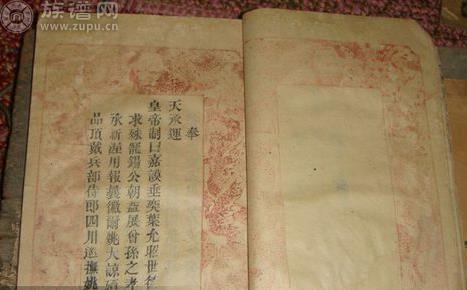 族谱网
www.zupu.cn
奉
天承運
皇帝制曰嘉謨垂奕葉允昭世德
求殊寵錫公朝益展曾孫之孝
承新渥用報義徽爾姚大諒
品頂戴兵部侍郎四川巡撫姚